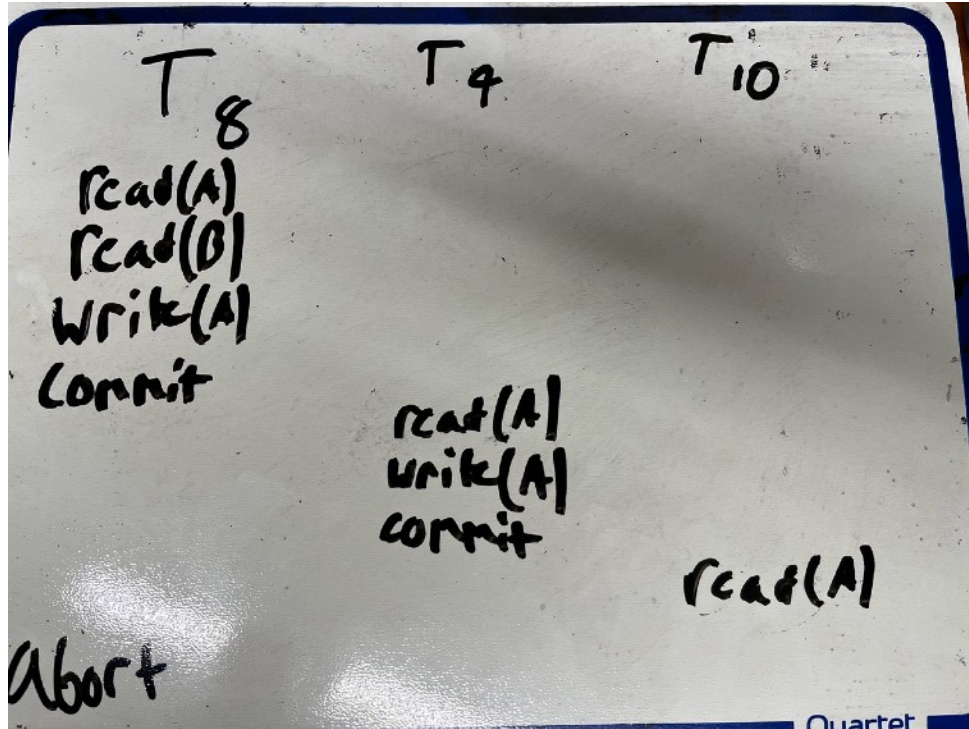 T8 T9 T10
read(A)
read(B)
write(A)
commit
read(A)
write(A)
commit
read(A)
Abort
Quartet